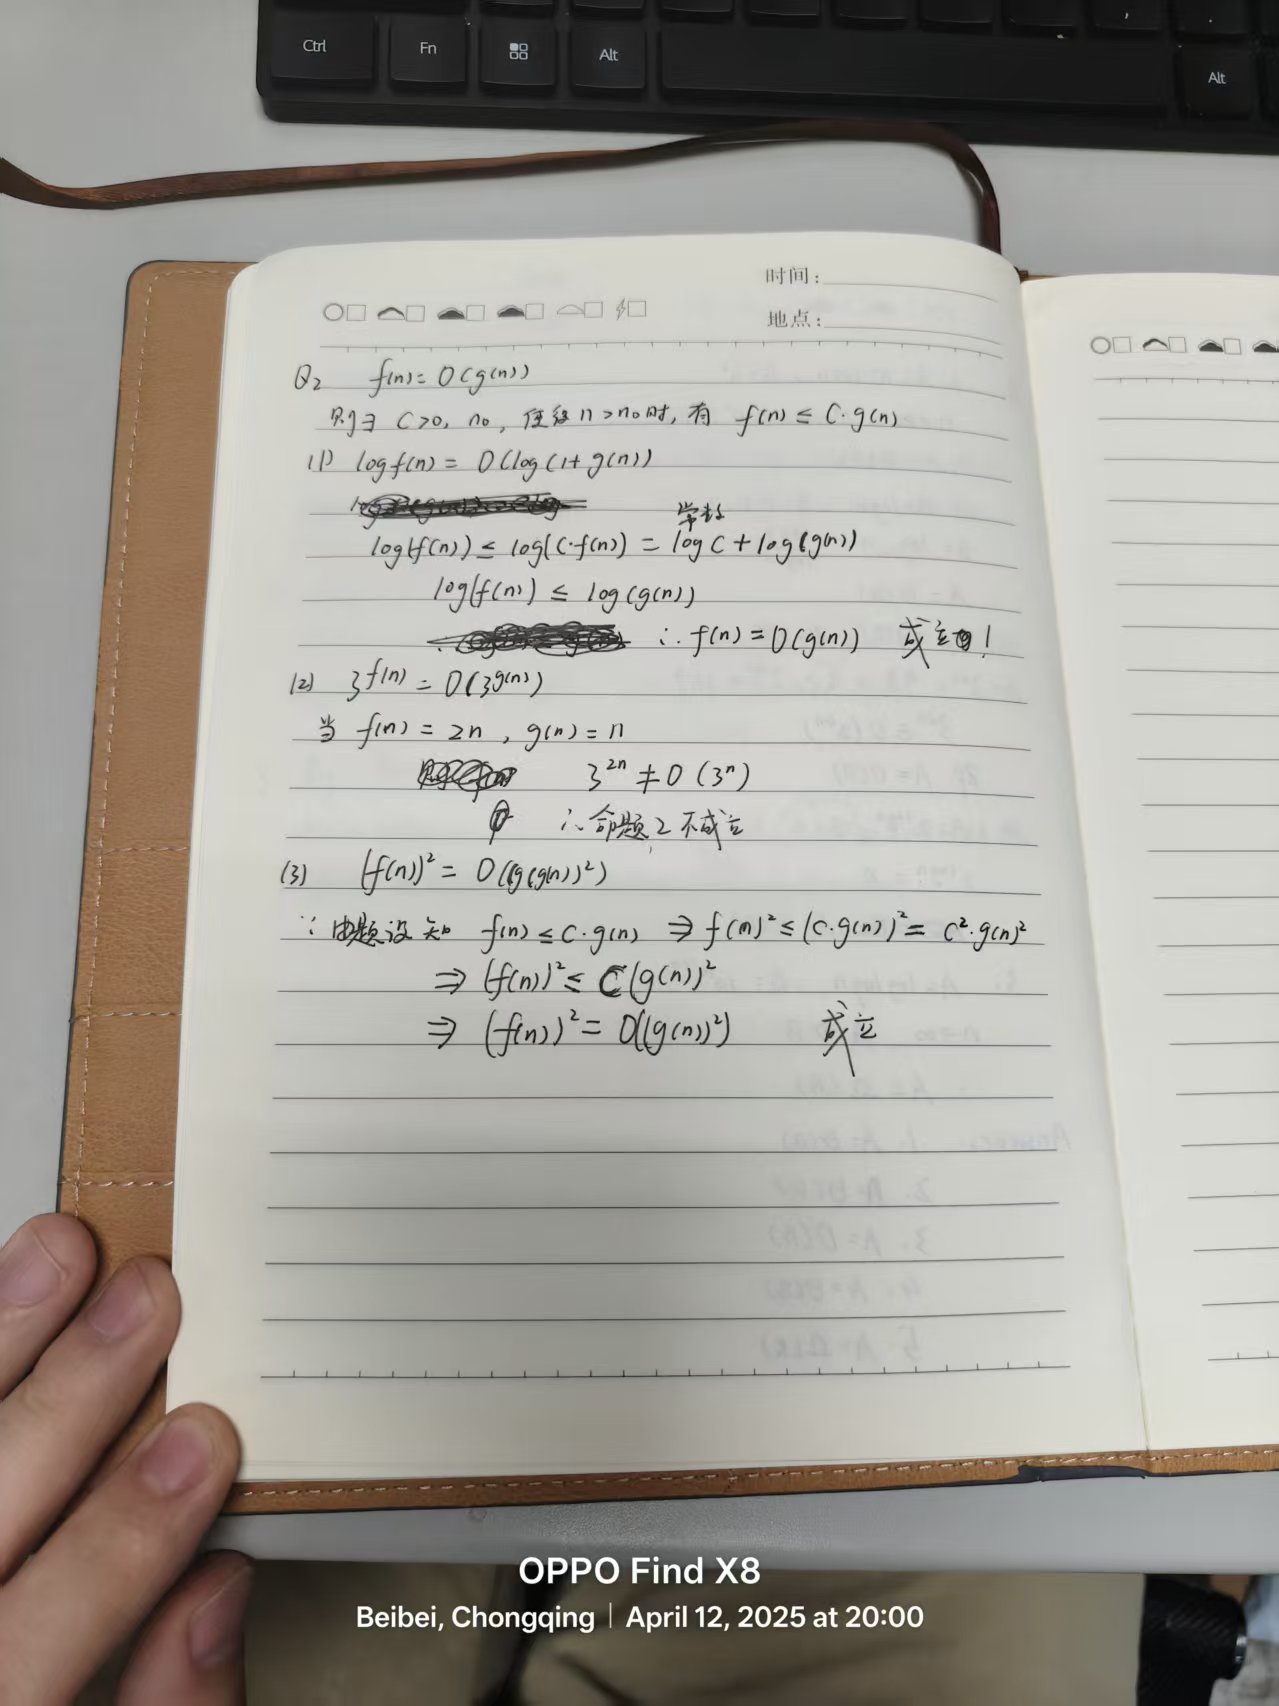 Ctrl Fn Alt Alt
时间:
地点:
Q2 f(n) = O(g(n))
则∃ C>0, n₀, 使得 n>n₀时, 有 f(n) ≤ C·g(n)
(1) log f(n) = O(log(1+g(n))
常数
log(f(n)) ≤ log(C·f(n)) = log C + log(g(n))
log(f(n)) ≤ log(g(n))
∴ f(n) = O(g(n)) 成立!
(2) 3^f(n) = O(3^g(n))
当 f(n) = 2n, g(n) = n
3^2n ≠ O(3^n)
∴ 命题2不成立
(3) (f(n))² = O((g(g(n))²)
∵ 由题设知 f(n) ≤ C·g(n) ⇒ f(n)² ≤ (C·g(n))² = C²·g(n)²
⇒ (f(n))² ≤ C(g(n))²
⇒ (f(n))² = O((g(n))²) 成立
OPPO Find X8
Beibei, Chongqing | April 12, 2025 at 20:00